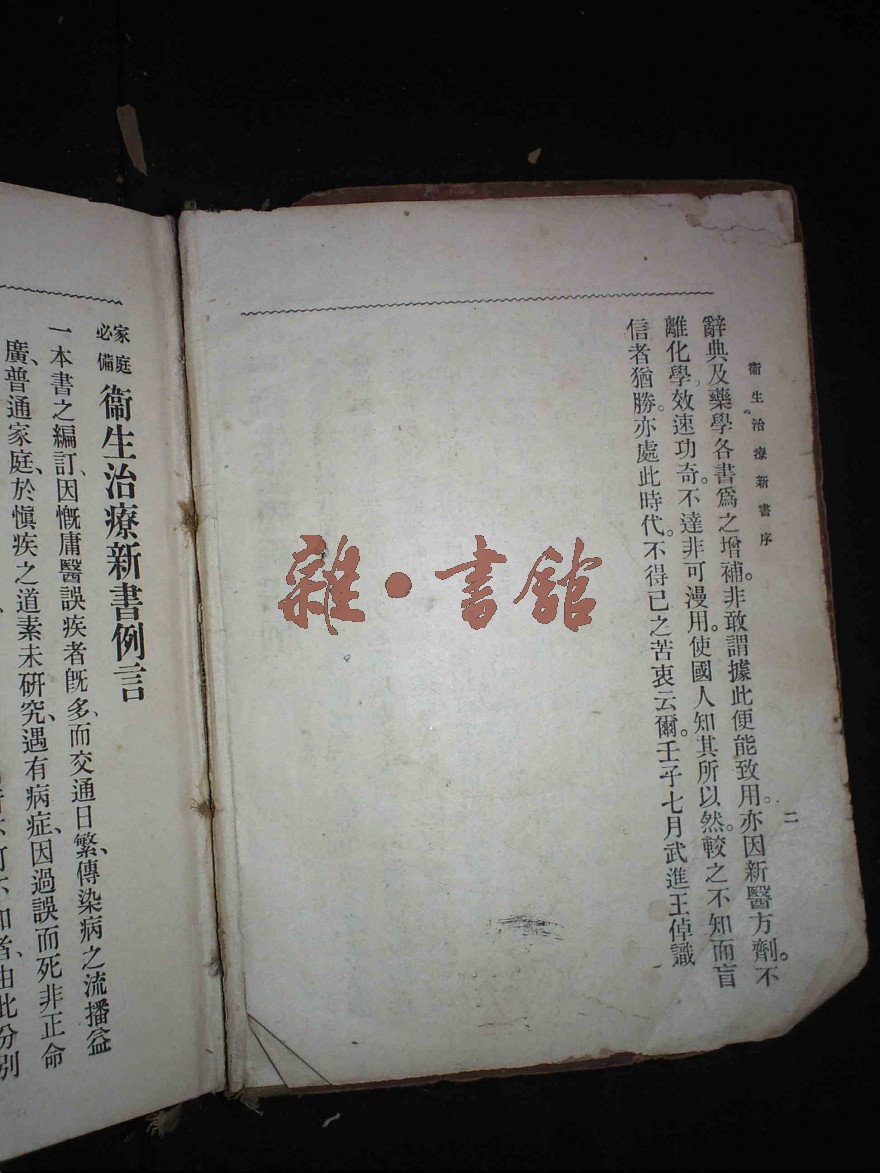 衞生治療新書序
二
辭典及藥學各書爲之增補。非敢謂據此便能致用。亦因新醫方劑。不
離化學。效速功奇。不達非可漫用。使國人知其所以然。較之不知而盲
信者猶勝。亦處此時代。不得已之苦衷云爾。壬子七月武進王倬識
雜·書館
家庭
必備
衞生治療新書例言
一本書之編訂、因慨庸醫誤疾者旣多、而交通日繁、傳染病之流播益
廣、普通家庭、於愼疾之道素未硏究、遇有病症、因過誤而死非正命
不可不知者、由此分別